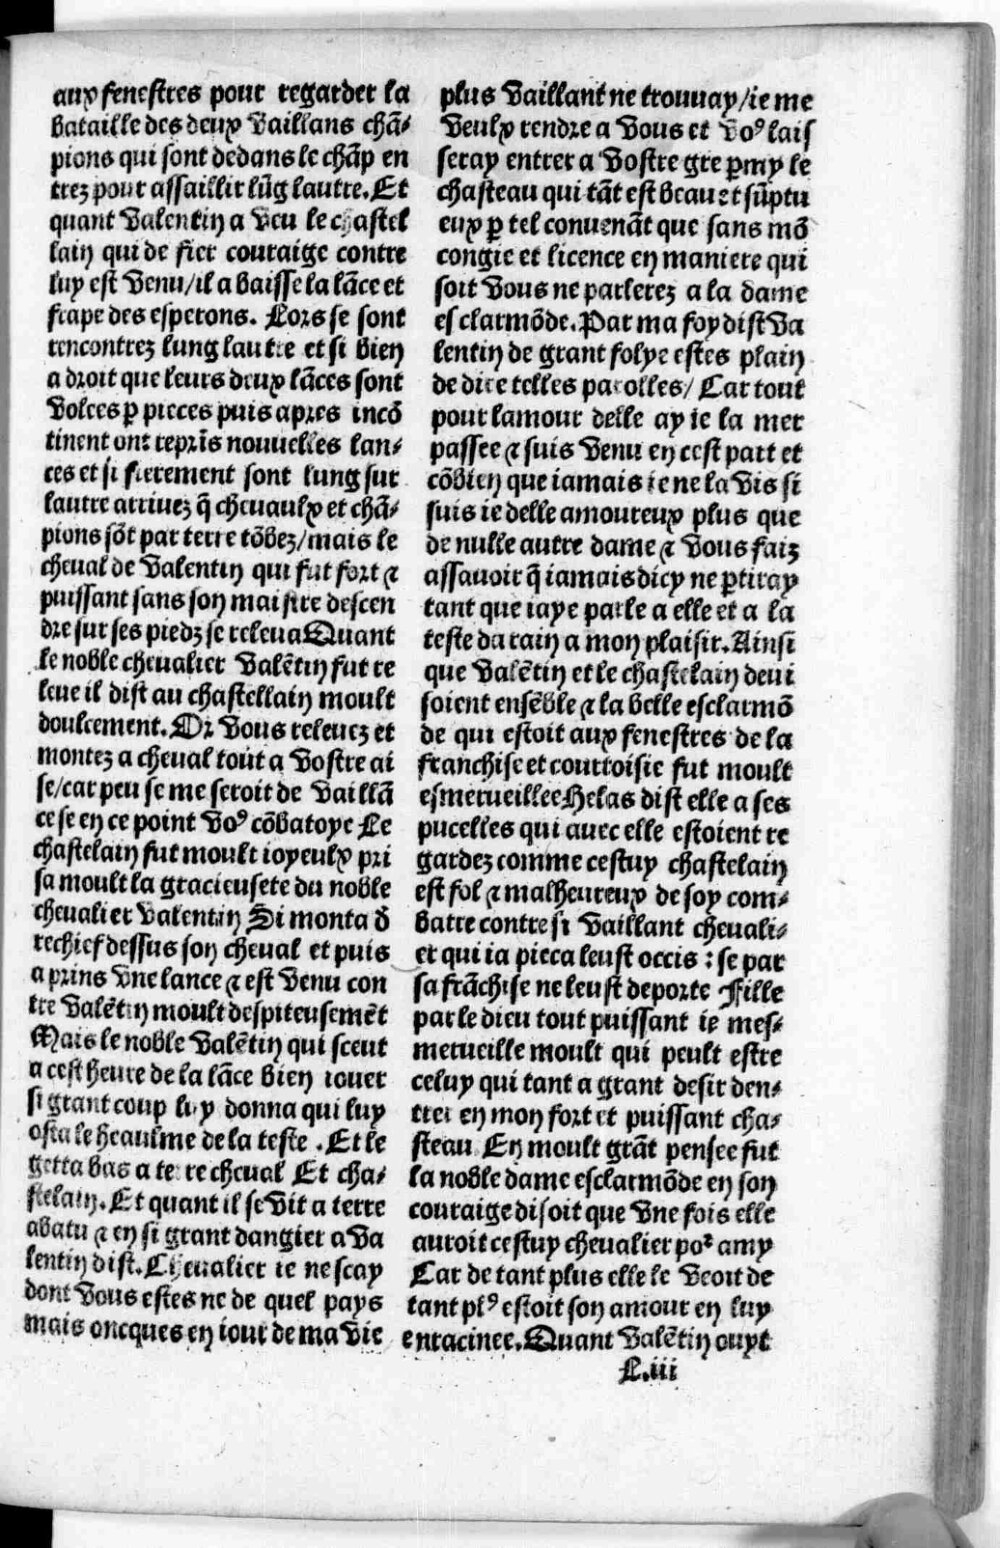 aux fenestres pour regarder la
bataille des deux vaillans chã-
pions qui sont dedans le chãp en
trez pour assaillir lũg lautre. Et
quant Valentin a veu le chastel
lain qui de fier couraige contre
luy est venu/il a baisse la lãce et
frape des esperons. Lors se sont
rencontrez lung lautre et si bien
a droit que leurs deux lãces sont
volees ꝑ pieces puis apres incõ
tinent ont repris nouuelles lan-
ces et si fierement sont lung sur
lautre arriuez q̃ cheuaulx et chã-
pions sõt par terre tõbez/mais le
cheual de Valentin qui fut fort ⁊
puissant sans son maistre descen
dre sur ses piedz se releua Quant
le noble cheualier Valẽtin fut re
leue il dist au chastellain moult
doulcement. Or vous releuez et
montez a cheual tout a vostre ai
se/car peu se me seroit de vaillã
ce se en ce point voꝰ cõbatoye Le
chastelain fut moult ioyeulx pri
sa moult la gracieusete du noble
cheualier Valentin Si monta d̃
rechief dessus son cheual et puis
a prins vne lance ⁊ est venu con
tre Valẽtin moult despiteusemẽt
Mais le noble Valẽtin qui sceut
a cest heure de la lãce bien iouer
si grant coup luy donna qui luy
osta le heaulme de la teste . Et le
getta bas a terre cheual Et cha-
stelain. Et quant il se vit a terre
abatu ⁊ en si grant dangier a Va
lentin dist. Cheualier ie ne scay
dont vous estes ne de quel pays
mais oncques en iour de ma vie
plus vaillant ne trouuay/ie me
veulx rendre a vous et voꝰ lais
seray entrer a vostre gre ꝑmy le
chasteau qui tãt est beau et sũptu
eux ꝑ tel conuenãt que sans mõ
congie et licence en maniere qui
soit vous ne parlerez a la dame
esclarmõde. Par ma foy dist Va
lentin de grant folye estes plain
de dire telles parolles/ Car tout
pour lamour delle ay ie la mer
passee ⁊ suis venu en cest part et
cõbien que iamais ie ne la vis si
suis ie delle amoureux plus que
de nulle autre dame ⁊ vous faiz
assauoir q̃ iamais dicy ne ꝑtiray
tant que iaye parle a elle et a la
teste darain a mon plaisir. Ainsi
que Valẽtin et le chastelain deui
soient ensẽble ⁊ la belle esclarmõ
de qui estoit aux fenestres de la
franchise et courtoisie fut moult
esmerueillee Helas dist elle a ses
pucelles qui auec elle estoient re
gardez comme cestuy chastelain
est fol ⁊ malheureux de soy com-
batre contre si vaillant cheuali-
er qui ia pieca leust occis : se par
sa frãchise ne leust deporte Fille
par le dieu tout puissant ie mes-
merueille moult qui peult estre
celuy qui tant a grant desir den-
trer en mon fort et puissant cha-
steau En moult grãt pensee fut
la noble dame esclarmõde en son
couraige disoit que vne fois elle
auroit cestuy cheualier poᷣ amy
Car de tant plus elle le veoit de
tant plꝰ estoit son amour en luy
entacinee. Quant Valẽtin ouyt
L.iii